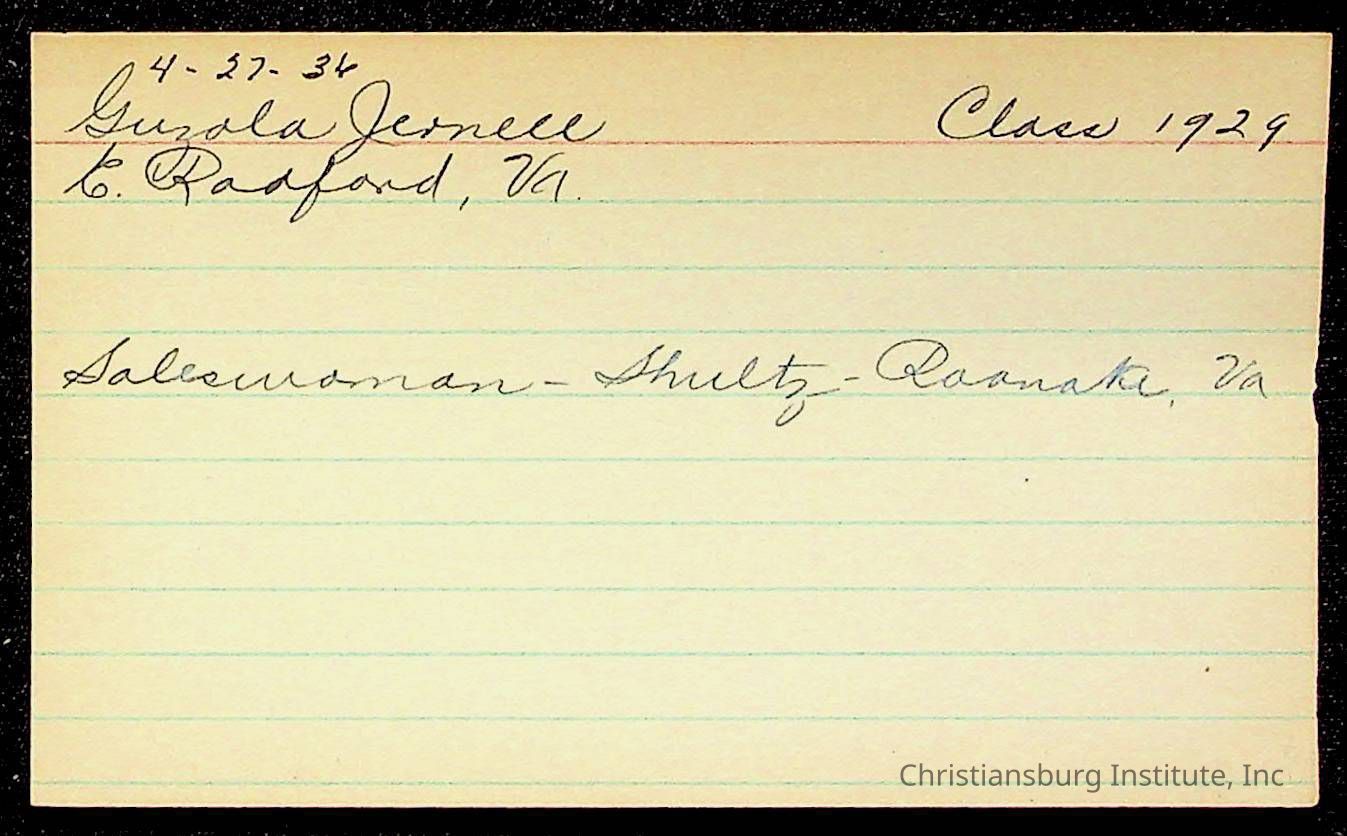 4-27-36
Guzola Jernell Class 1929
E. Radford, Va.
Saleswoman - Shultz - Roanoke, Va
Christiansburg Institute, Inc